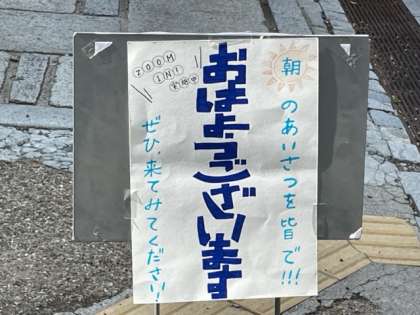 朝のあいさつを皆で!!!
おはようございます
ZOOM
IN!
実施中
ぜひ、来てみてください!